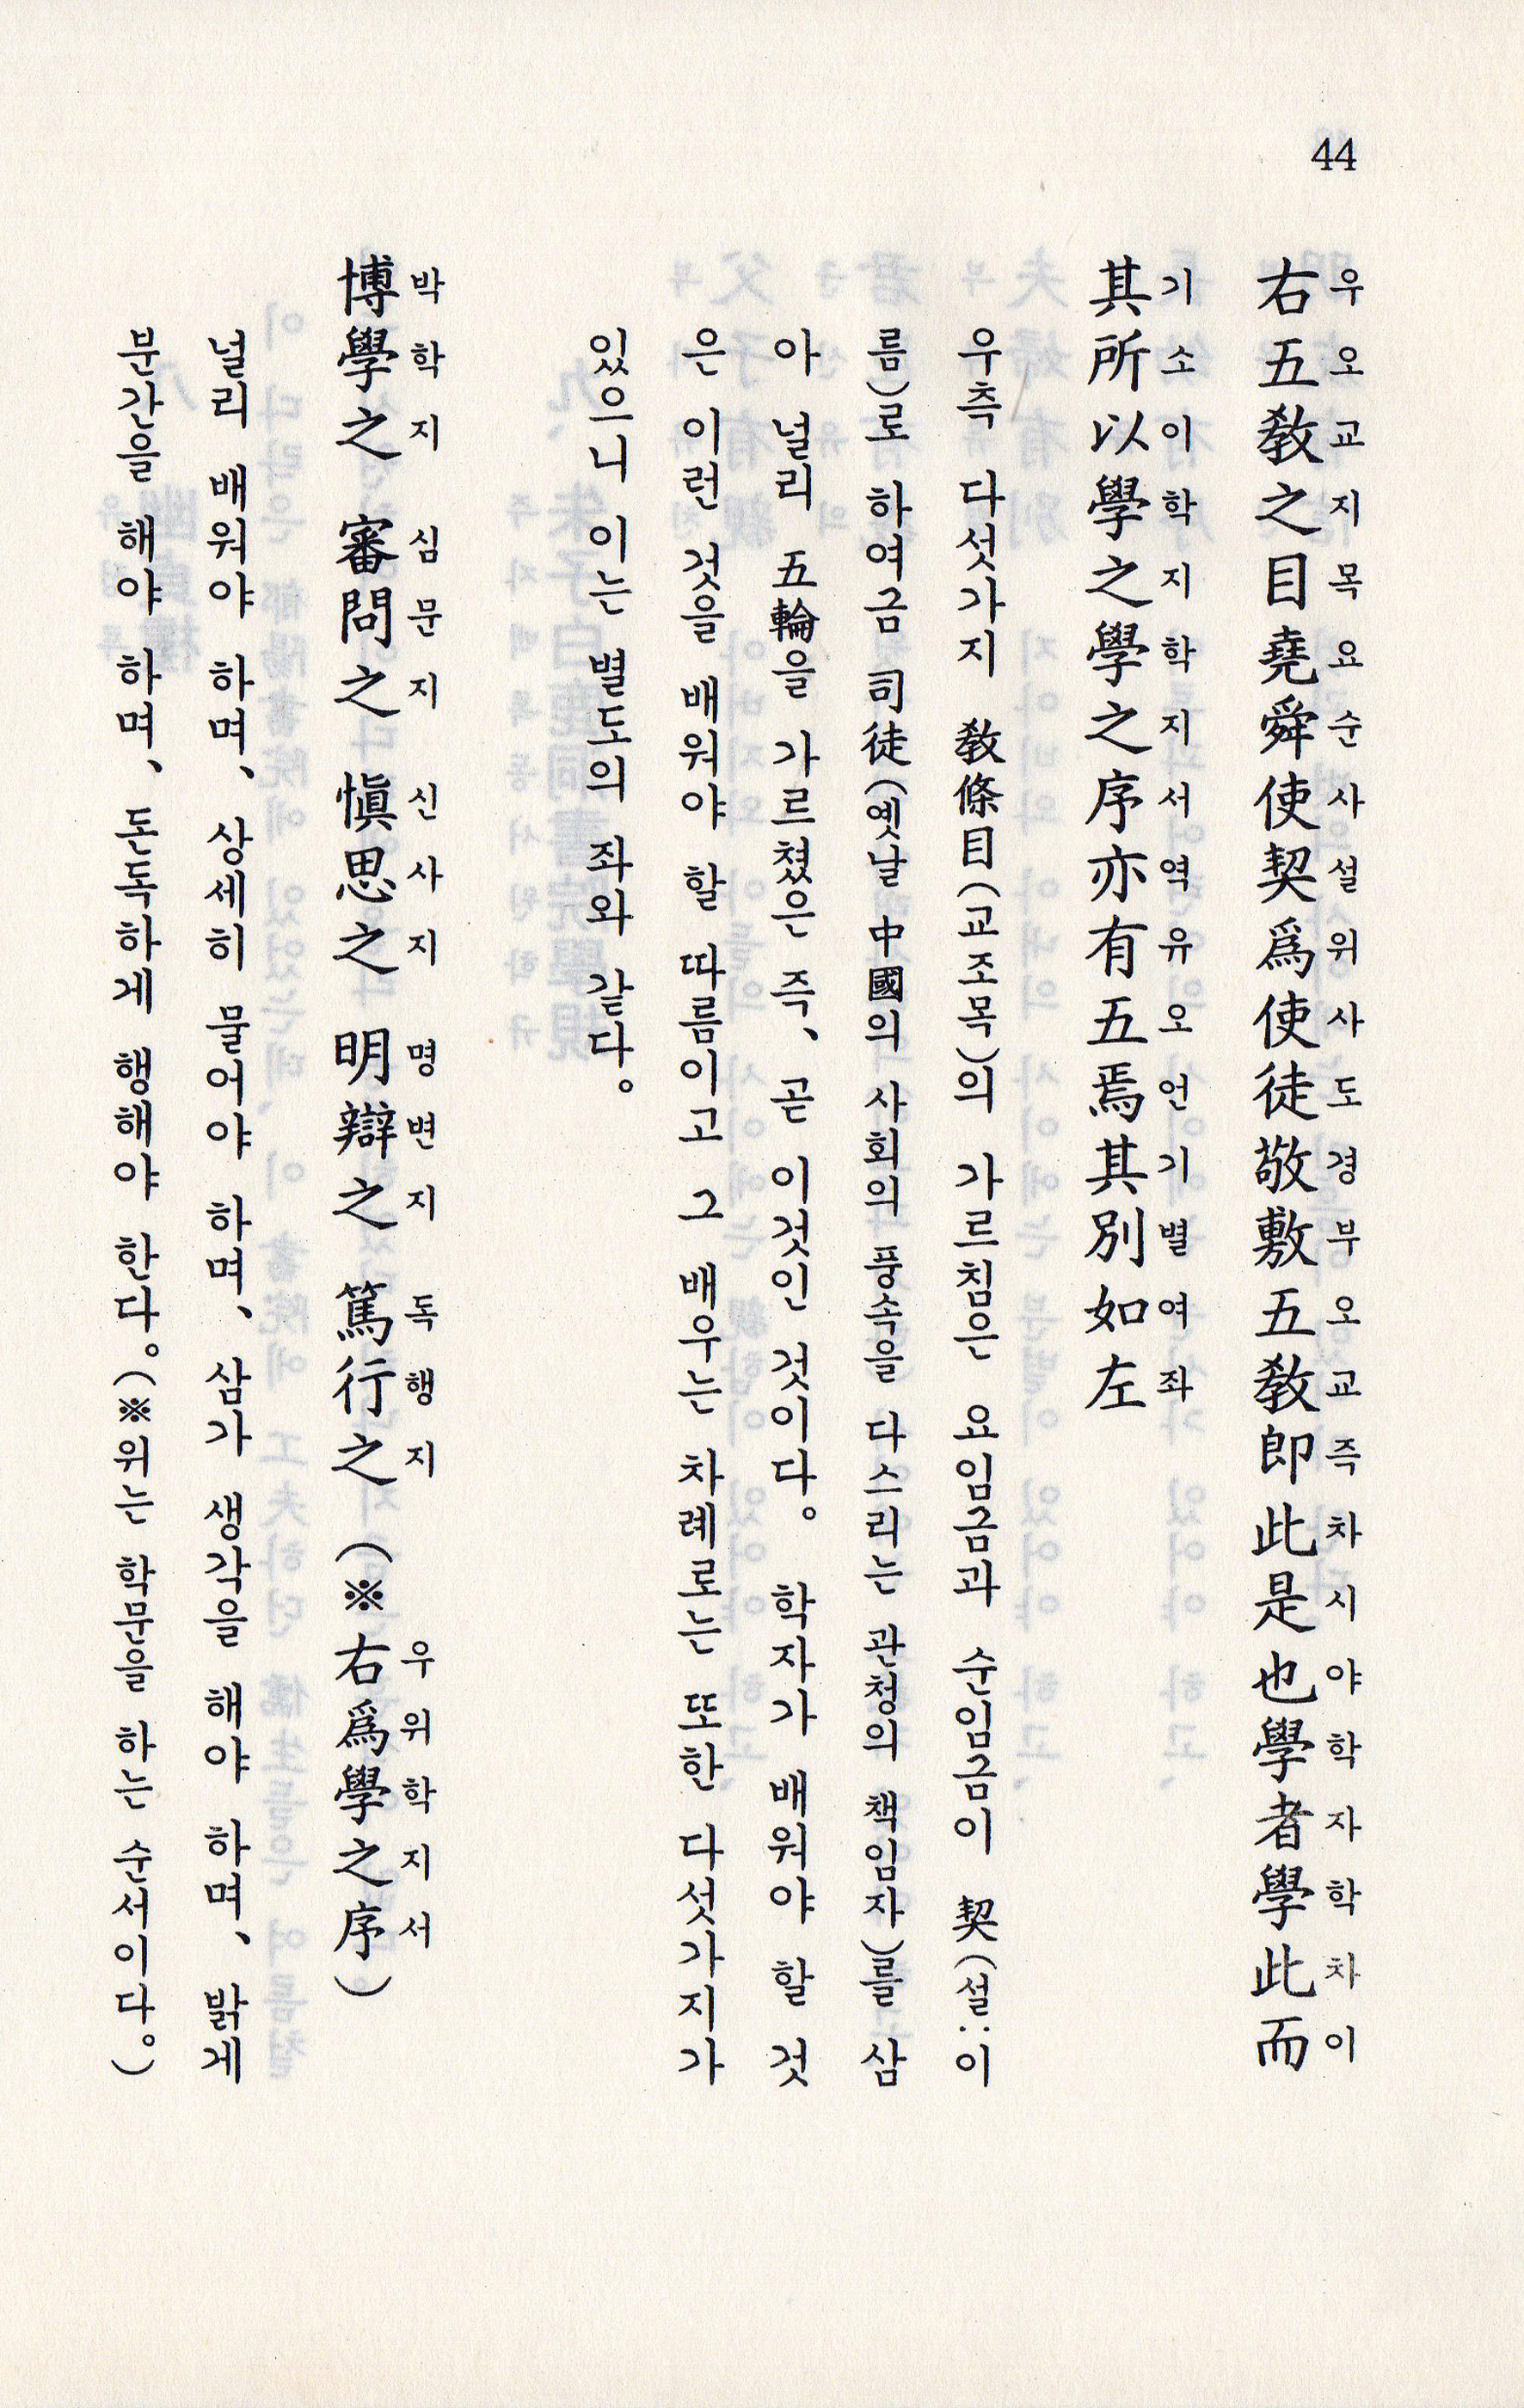 44
右五敎之目堯舜使契爲使徒敬敷五敎即此是也學者學此而
우오교지목요순사설위사도경부오교즉차시야학자학차이
其所以學之學之序亦有五焉其別如左
기소이학지학지서역유오언기별여좌
우측 다섯가지 敎條目(교조목)의 가르침은 요임금과 순임금이 契(설:이
름)로 하여금 司徒(옛날 中國의 사회의 풍속을 다스리는 관청의 책임자)를 삼
아 널리 五輪을 가르쳤은 즉, 곧 이것인 것이다. 학자가 배워야 할 것
은 이런 것을 배워야 할 따름이고 그 배우는 차례로는 또한 다섯가지가
있으니 이는 별도의 좌와 같다.
博學之 審問之 愼思之 明辯之 篤行之 (※右爲學之序)
박학지 심문지 신사지 명변지 독행지 우위학지서
널리 배워야 하며, 상세히 물어야 하며, 삼가 생각을 해야 하며, 밝게
분간을 해야 하며, 돈독하게 행해야 한다.(※위는 학문을 하는 순서이다.)